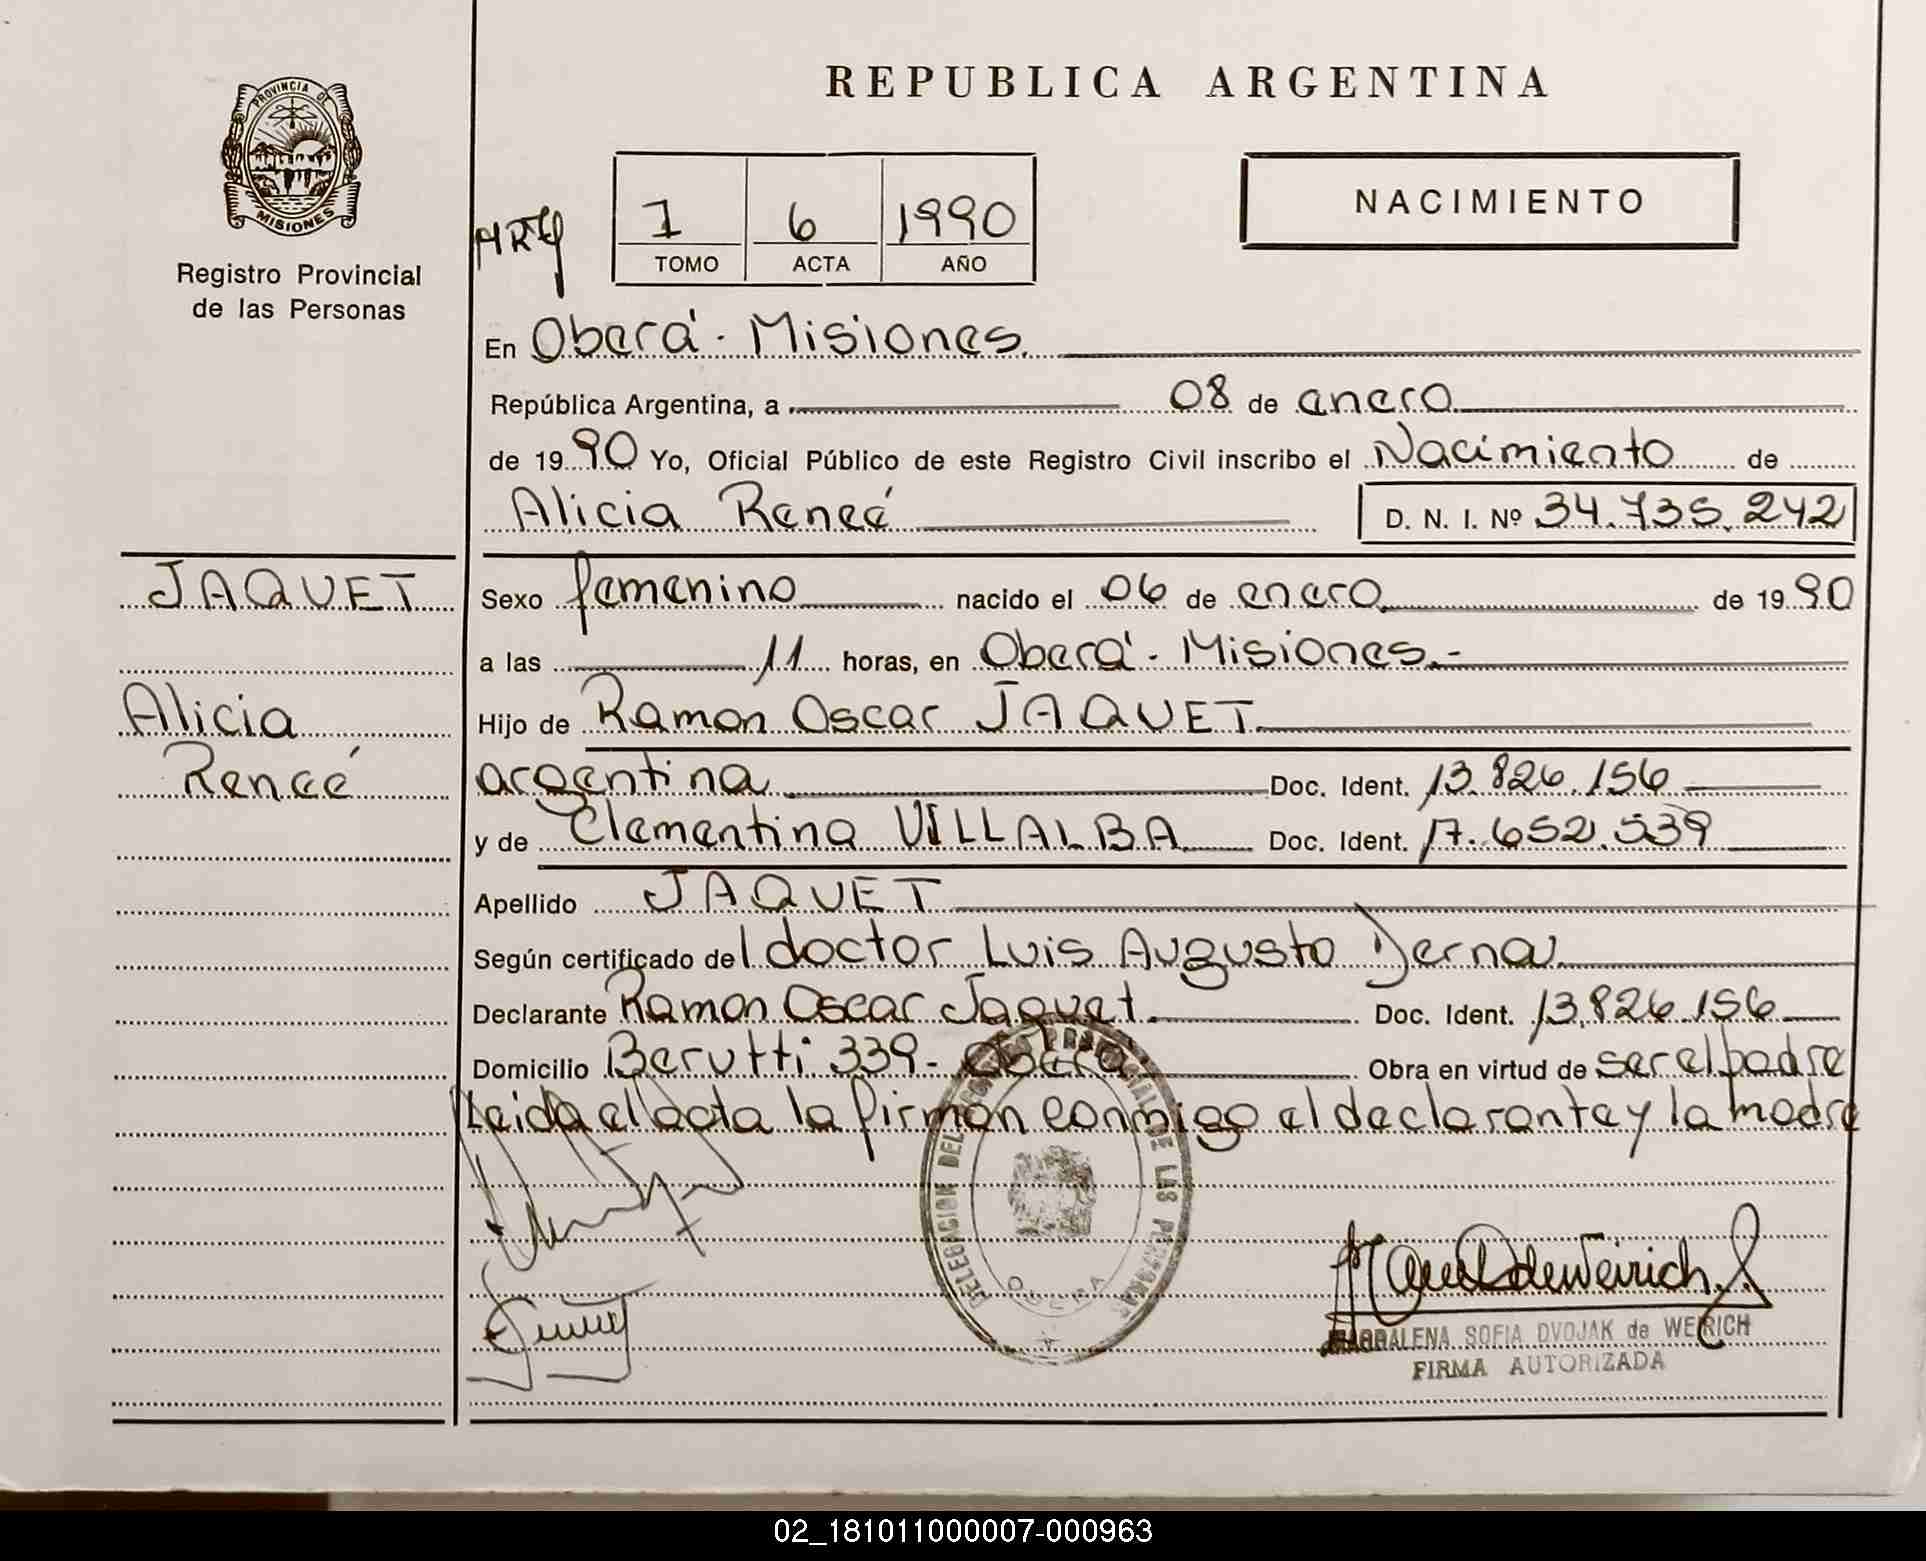 REPUBLICA ARGENTINA
PROVINCIA DE
MISIONES
Registro Provincial
de las Personas
1 6 1990
TOMO ACTA AÑO
NACIMIENTO
En Oberá - Misiones.
República Argentina, a 08 de enero
de 1990 Yo, Oficial Público de este Registro Civil inscribo el Nacimiento de
Alicia Reneé D. N. I. Nº 34.735.242
JAQUET
Alicia
Reneé
Sexo femenino nacido el 06 de enero de 1990
a las 11 horas, en Oberá - Misiones.-
Hijo de Ramon Oscar JAQUET
argentina Doc. Ident. 13.826.156
y de Clementina VILLALBA Doc. Ident. 17.652.539
Apellido JAQUET
Según certificado del doctor Luis Augusto Derna
Declarante Ramon Oscar Jaquet Doc. Ident. 13.826.156
Domicilio Berutti 339 - Oberá Obra en virtud de ser el padre
Leida el acta la firman conmigo el declarante y la madre
DELEGACION DEL REGISTRO PROVINCIAL DE LAS PERSONAS
OBERA
MAGDALENA SOFIA DVOJAK de WEIRICH
FIRMA AUTORIZADA
02_181011000007-000963